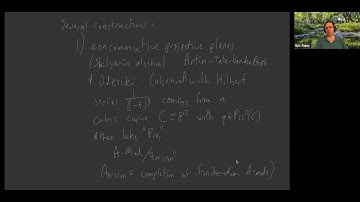 Several constructions:
1) noncommutative projective planes
(Sklyanin algebra) Artin-Tate-Van den Bergh
& Odesskii. (algebra A with Hilbert
series 1/(1-t)^3 comes from a
cubic curve C ⊆ P^2 with q ∈ Pic^0(C)
then take "Proj"
A-Mod/"torsion"
(torsion = completion of finite-dim A-mods)
Eric Rains